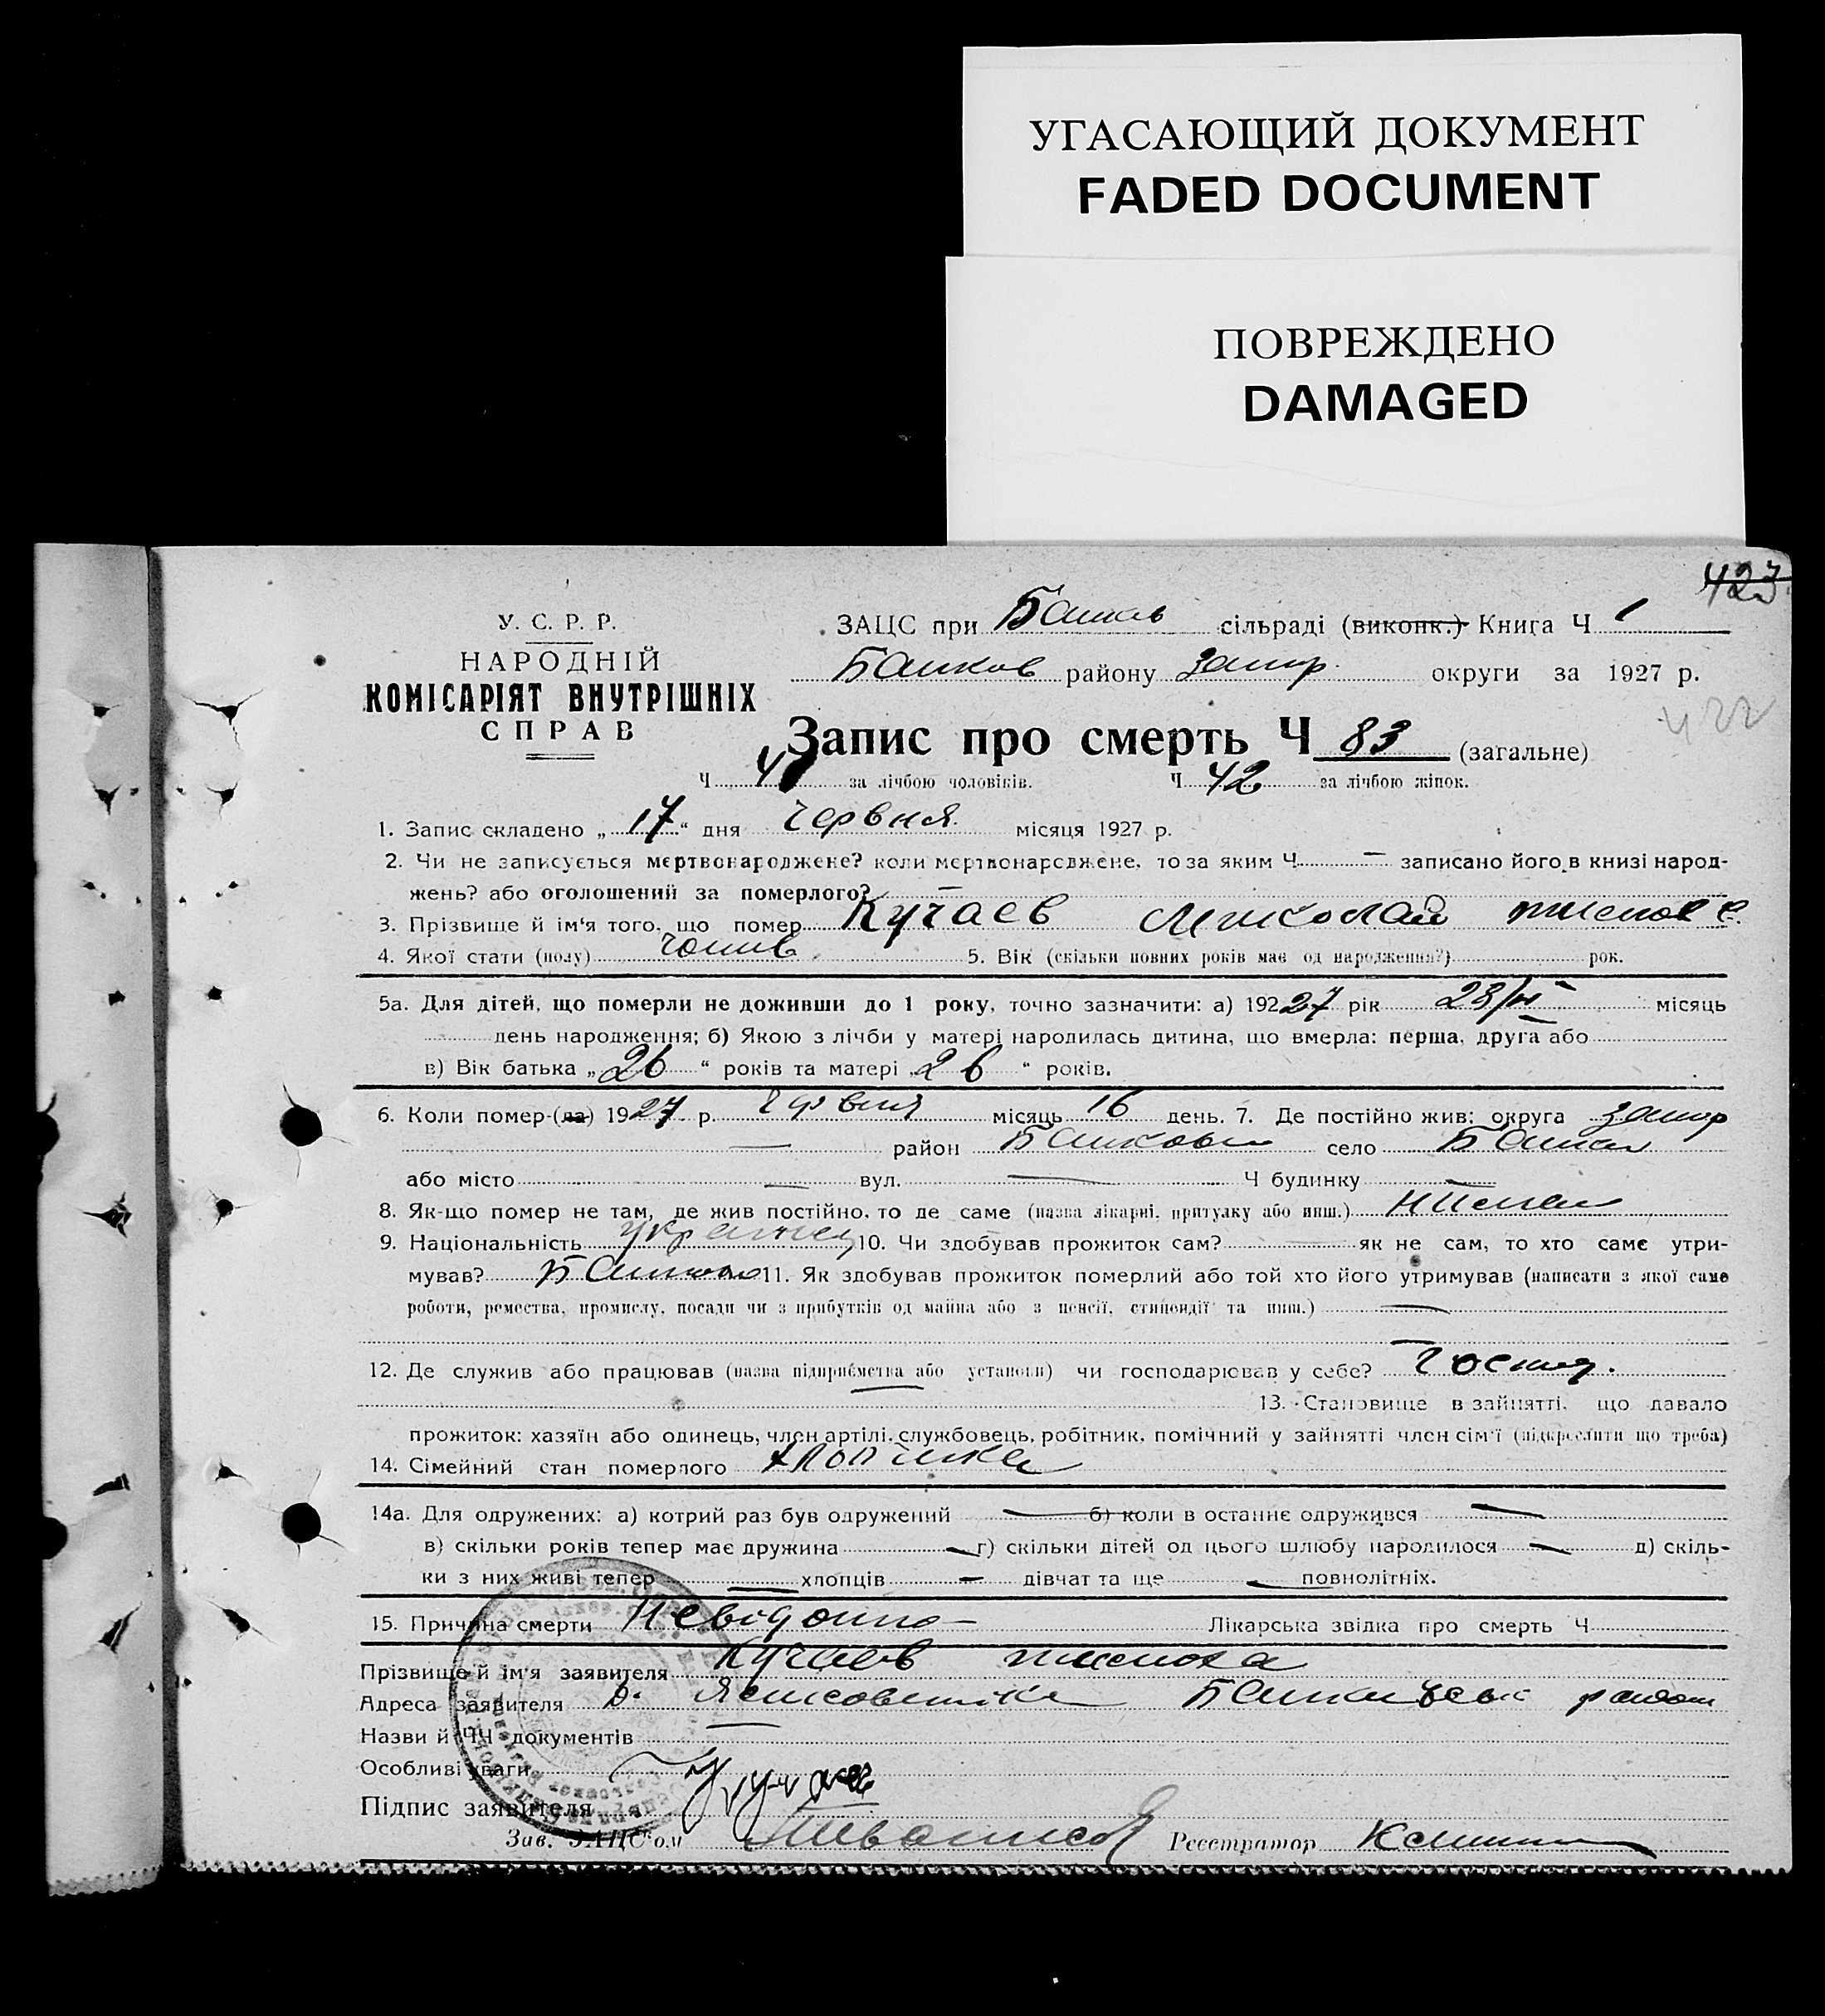 УГАСАЮЩИЙ ДОКУМЕНТ
FADED DOCUMENT
ПОВРЕЖДЕНО
DAMAGED
423
У. С. Р. Р.
НАРОДНІЙ
КОМІСАРІЯТ ВНУТРІШНІХ
СПРАВ
ЗАЦС при сільраді (виконк.) Книга Ч 1
району Запор. округи за 1927 р.
422
Запис про смерть Ч 83 (загальне)
Ч 41 за лічбою чоловіків. Ч 42 за лічбою жінок.
1. Запис складено „ 17 “ дня Червня місяця 1927 р.
2. Чи не записується мертвонароджене? коли мертвонароджене, то за яким Ч — записано його в книзі народ-
жень? або оголошений за померлого? —
3. Прізвище й ім'я того, що помер Кучаев Миколай
4. Якої стати (полу) чолов 5. Вік (скільки повних років має од народження?) рок.
5а. Для дітей, що померли не доживши до 1 року, точно зазначити: а) 192 27 рік місяць
день народження; б) Якою з лічби у матері народилась дитина, що вмерла: перша, друга або
в) Вік батька „ 26 “ років та матері „ 26 “ років.
6. Коли помер-(ла) 1927 р. Червня місяць 16 день. 7. Де постійно жив: округа Запор
— район село
або місто — вул. — Ч будинку —
8. Як-що помер не там, де жив постійно, то де саме (назва лікарні, притулку або инш.)
9. Національність українец 10. Чи здобував прожиток сам? — як не сам, то хто саме утри-
мував? Батько 11. Як здобував прожиток померлий або той хто його утримував (написати з якої саме
роботи, ремества, промислу, посади чи з прибутків од майна або з пенсії, стипендії та инш.) —
12. Де служив або працював (назва підприємства або установи) чи господарював у себе? Господ.
13. Становище в зайнятті, що давало
прожиток: хазяїн або одинець, член артілі, службовець, робітник, помічний у зайнятті член сім'ї (підкреслити що треба)
14. Сімейний стан померлого
14а. Для одружених: а) котрий раз був одружений — б) коли в останнє одружився —
в) скільки років тепер має дружина — г) скільки дітей од цього шлюбу народилося — д) скіль-
ки з них живі тепер — хлопців — дівчат та ще — повнолітніх.
15. Причина смерти Невідомо Лікарська звідка про смерть Ч
Прізвище й ім'я заявителя Кучаев
Адреса заявителя район
Назви й ЧЧ документів —
Особливі уваги
Підпис заявителя
Зав. ЗАЦС'ом Реєстратор